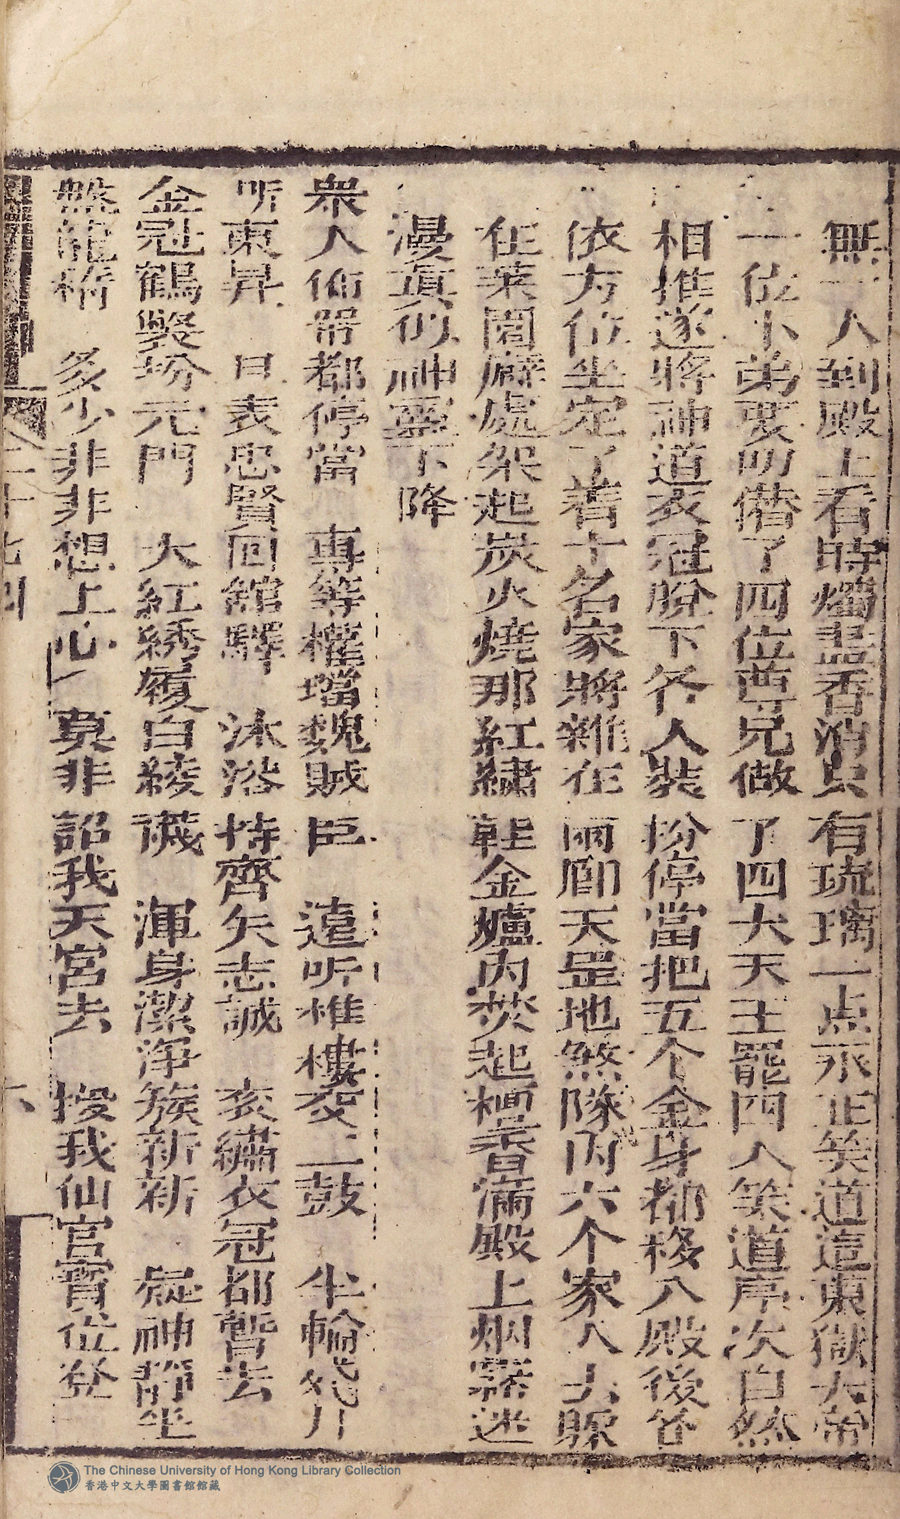 無一人到殿上看時燭盡香消只有琉璃一点氷正笑道這東獄大帝
一位小弟要叨僣了四位尊兄做了四大天王罷四人笑道序次自然
相推遂將神道衣冠脫下各人裝扮停當把五个金身都移入殿後各
依方位坐定了着十名家將雜在兩廊天罡地煞隊內六个家人去躱
在菜園廨處架起炭火燒那紅繡鞋金爐內焚起檀香滿殿上烟霧迷
漫眞仍神靈下降
衆人佈㫮都停當 專等權璫魏賊臣 遠听樵樓交二鼓 半輪殘月
听東昇 日表忠賢回舘驛 沐浴持齊矢志誠 衣繡衣冠都暫去
金冠鶴氅扮元門 大紅綉履白綾襪 渾身潔淨簇新新 凝神靜坐
盤龍椅 多少非非想上心 莫非詔我天宮去 授我仙官寳位登
二十七回
六
The Chinese University of Hong Kong Library Collection
香港中文大學圖書館館藏